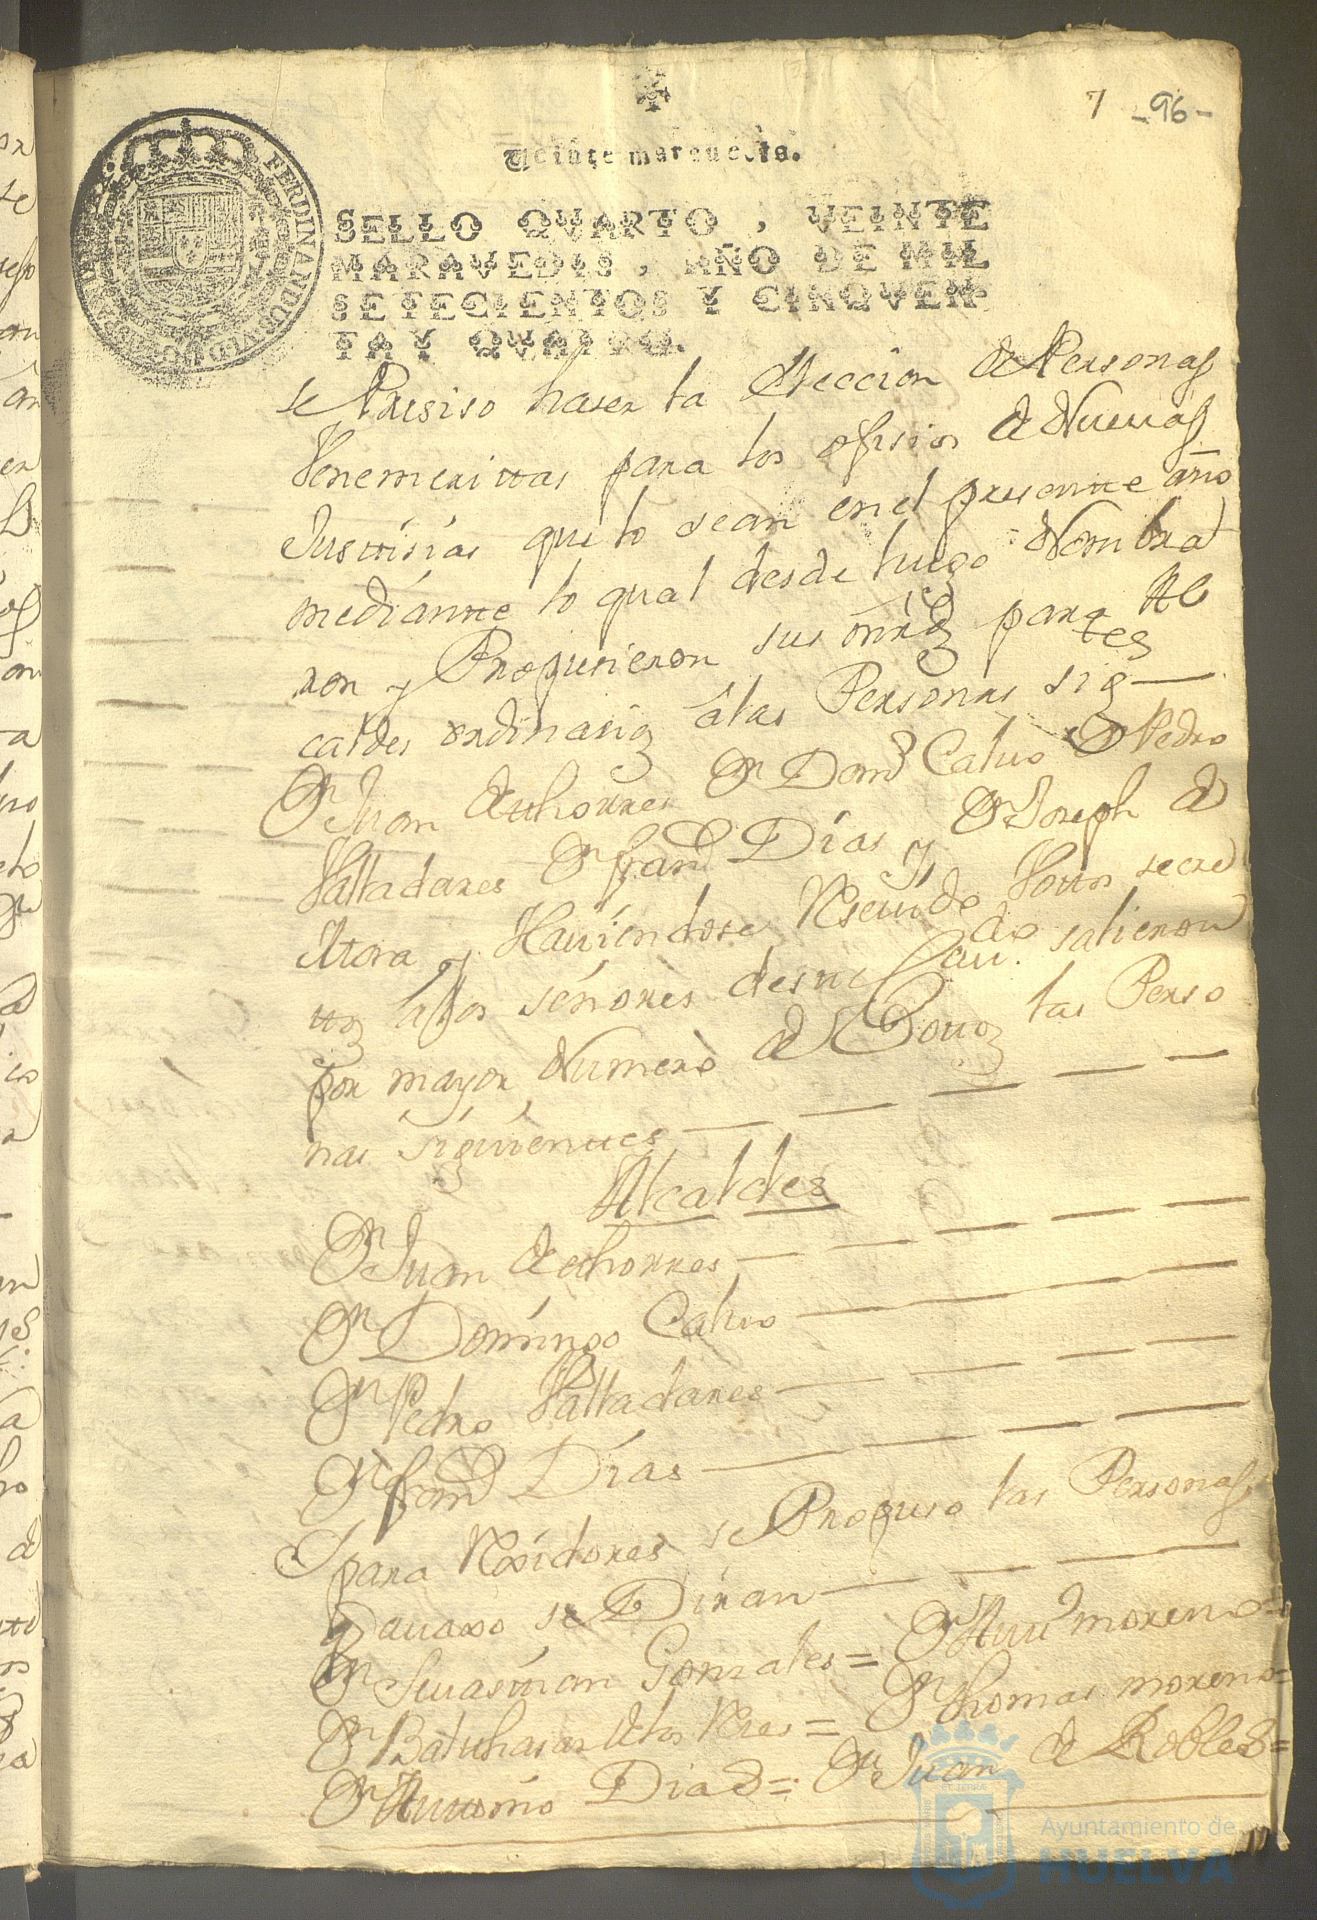 7 -96-
Veinte marauedis.
SELLO QVARTO, VEINTE
MARAVEDIS, AÑO DE MIL
SETECIENTOS Y CINQVEN-
TA Y QVATRO.
FERDINANDUS VI D G
se Presiso haser la eleccion de Personas
Venemerittas para los ofisios de Nuevas
Justtisias que lo sean en el presentte año
mediantte lo qual desde luego Nombra
ron y Propusieron sus mrds para Al
caldes ordinarios â las Personas sigtes
Dn Juan de thorres Dn Domo Calvo Dn Pedro
Valladares Dn franco Dias y Dn Joseph de
Mora y Haviendose Resevido Vottos secre
ttos a los señores deste Cavdo salieron
por mayor Numero de Vottos las Perso
nas siguienttes
Alcaldes
Dn Juan de thorres
Dn Domingo Calvo
Dn Pedro Valladares
Dn franco Dias
Y para Rexidores se Propuso las Personas
q avaxo se Diran
Dn Sevastian Gonzales = Dn Antto moreno =
Dn Balthasar de los Reies = Dn thomas moreno =
Dn Anttonio Diaz = Dn Juan de Robles =
Ayuntamiento de
HUELVA